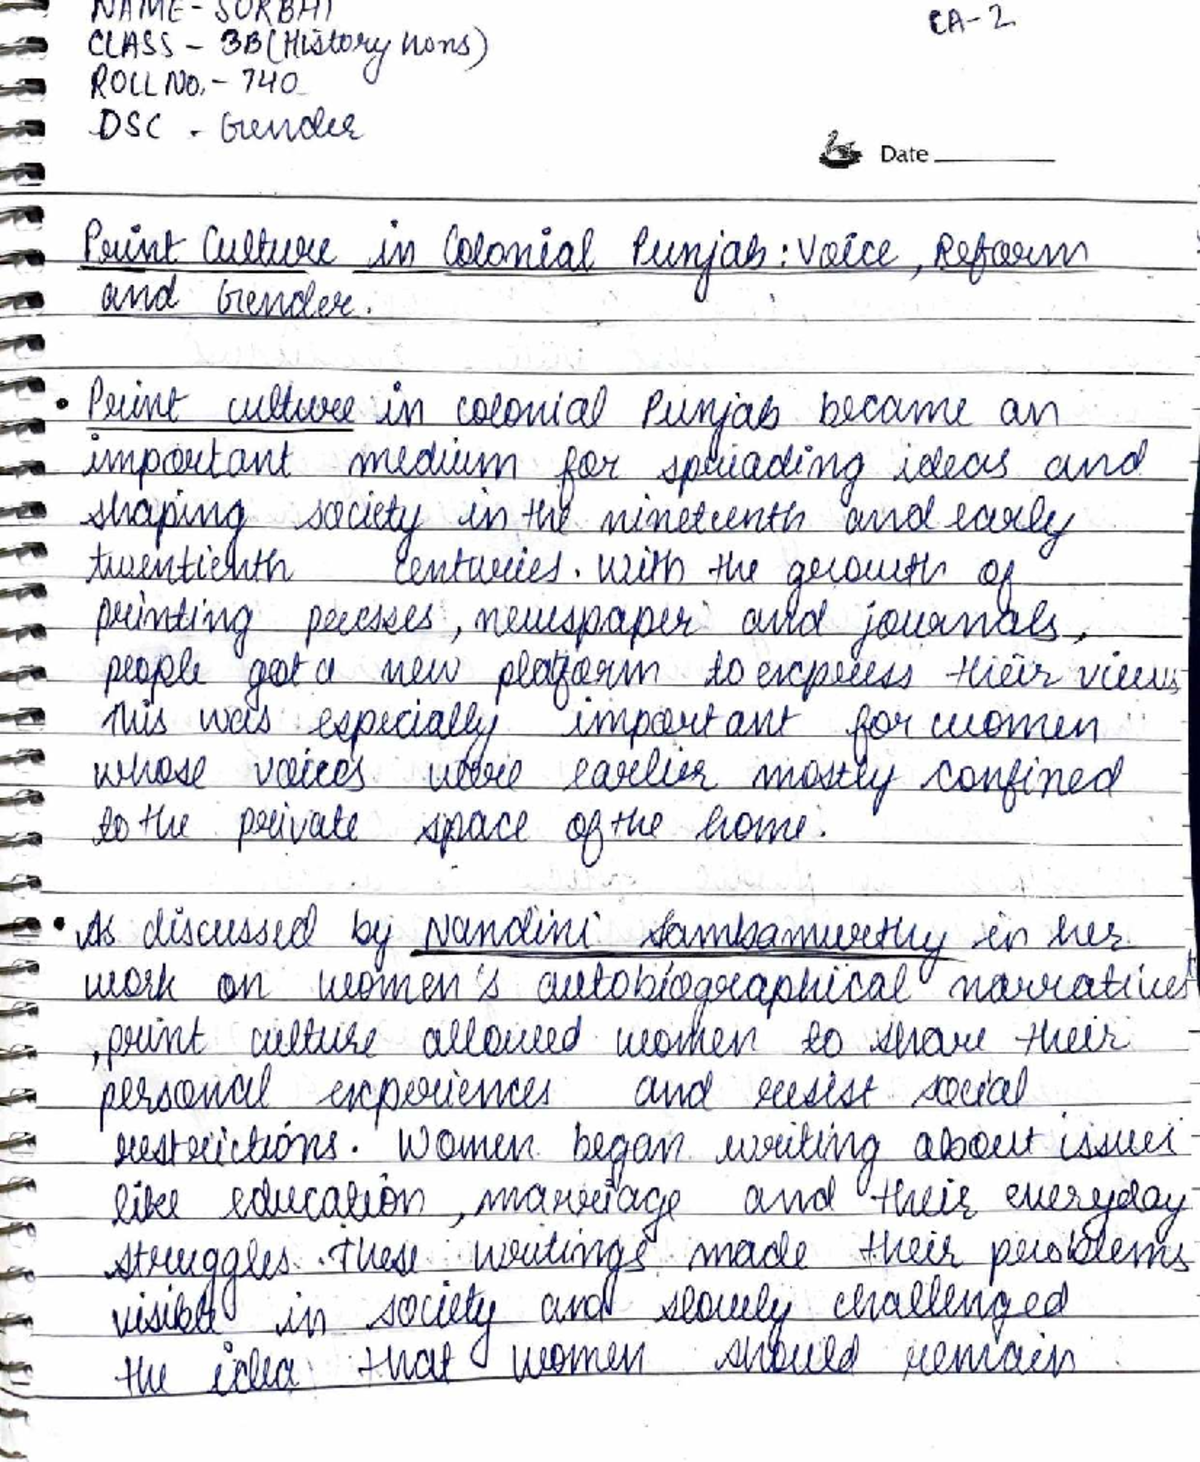 NAME- SURBHI
CA-2
CLASS - 3B (History hons)
ROLL NO.- 740
DSC - Gender
Date
Print Culture in Colonial Punjab: Voice, Reform
and Gender.
• Print culture in colonial Punjab became an
important medium for spreading ideas and
shaping society in the nineteenth and early
twentienth centuries. With the growth of
printing presses, newspaper and journals,
people got a new platform to express their views
This was especially important for women
whose voices were earlier mostly confined
to the private space of the home.
• As discussed by Nandini Sambamurthy in her
work on women's autobiographical narratives
, print culture allowed women to share their
personal experiences and resist social
restrictions. Women began writing about issues
like education, marriage and their everyday
struggles. These writings made their problems
visible in society and slowly challenged
the idea that women should remain